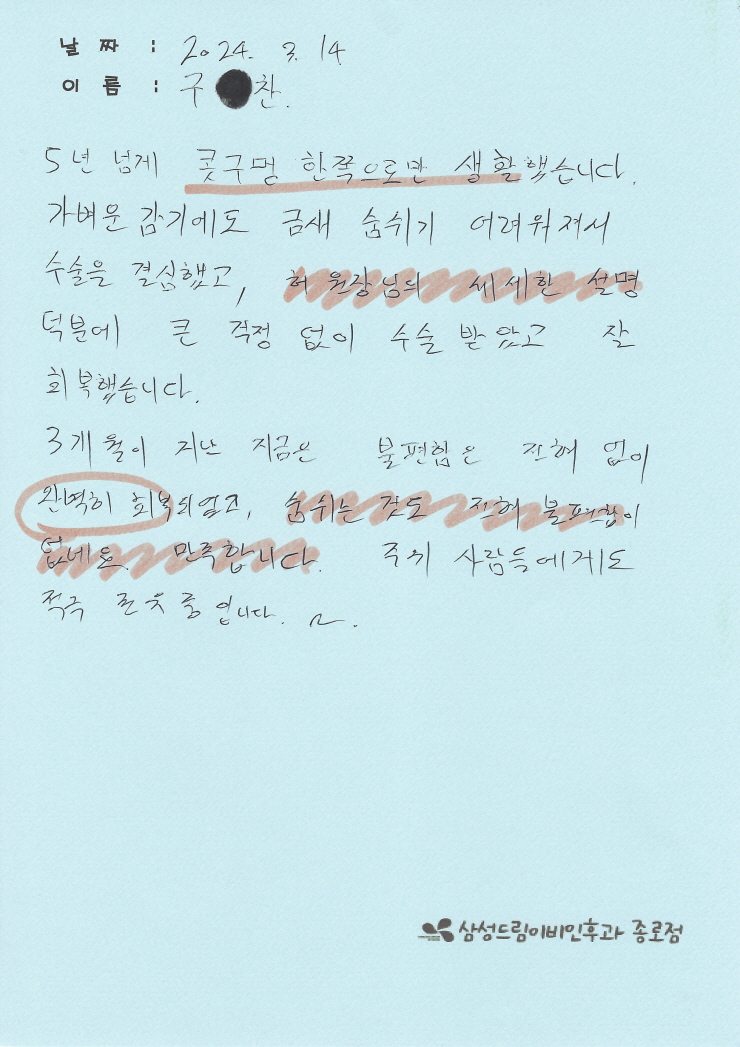 날 짜 : 2024. 3. 14
이 름 : 구 찬.
5년 넘게 콧구멍 한쪽으로만 생활했습니다.
가벼운 감기에도 금새 숨쉬기 어려워져서
수술을 결심했고, 허 원장님의 세세한 설명
덕분에 큰 걱정 없이 수술 받았고 잘
회복했습니다.
3개월이 지난 지금은 불편함은 전혀 없이
완벽히 회복되었고, 숨쉬는 것도 전혀 불편함이
없네요. 만족합니다. 주위 사람들에게도
적극 권유 중 입니다.
삼성드림이비인후과 종로점